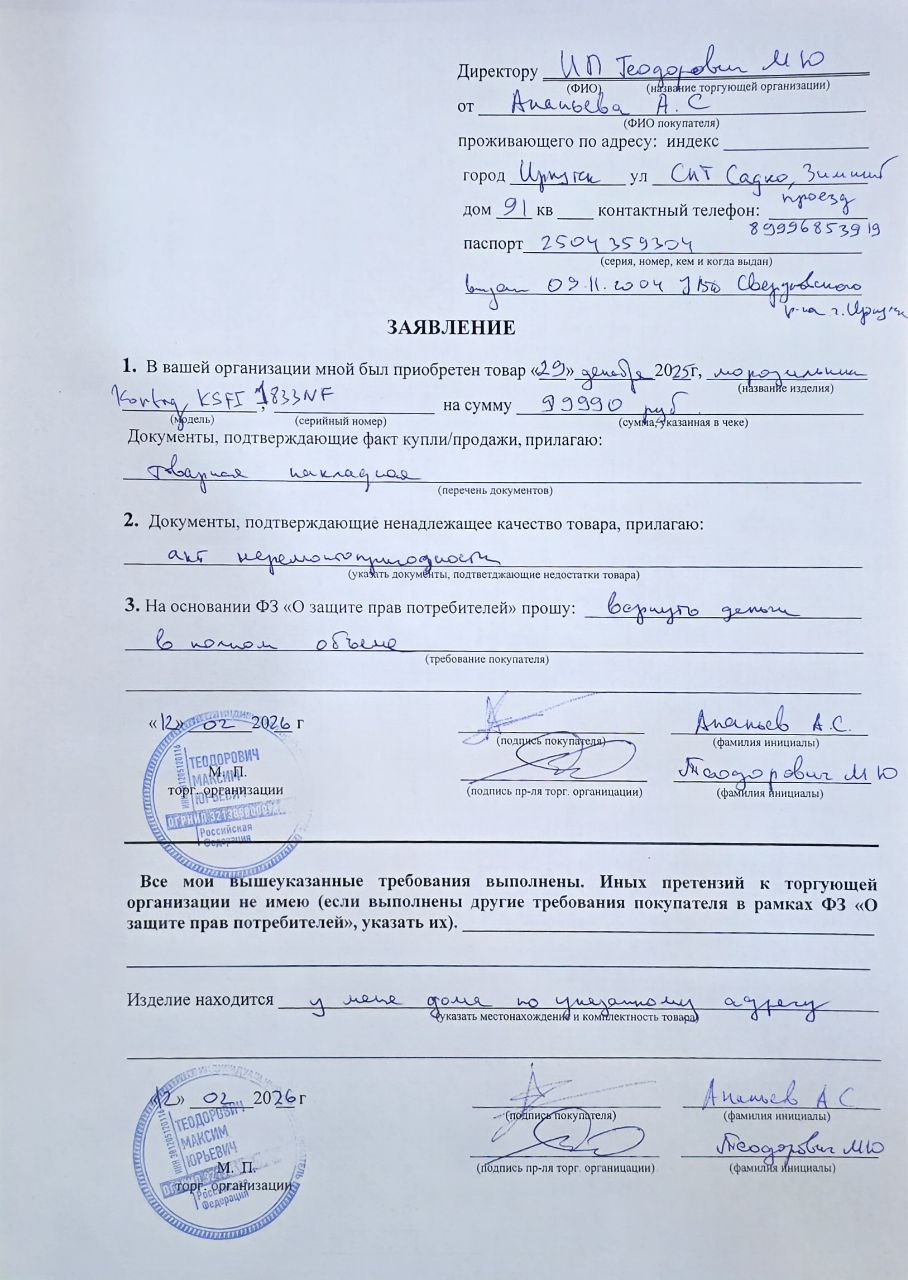 Директору ИП Теодорович М Ю
(ФИО) (название торгующей организации)
от Ананьева А. С
(ФИО покупателя)
проживающего по адресу: индекс
город Иркутск ул СНТ Садко, Зимний
проезд
дом 91 кв контактный телефон:
89996853919
паспорт 2504 359304
(серия, номер, кем и когда выдан)
выдан 09.11.2004 УВД Свердловского
р-на г. Иркутск
ЗАЯВЛЕНИЕ
1. В вашей организации мной был приобретен товар «29» декабря 2025г, морозильник
(название изделия)
Korting KSFI 1833NF, на сумму 99990 руб.
(модель) (серийный номер) (сумма, указанная в чеке)
Документы, подтверждающие факт купли/продажи, прилагаю:
товарная накладная
(перечень документов)
2. Документы, подтверждающие ненадлежащее качество товара, прилагаю:
акт неремонтопригодности
(указать документы, подтветджающие недостатки товара)
3. На основании ФЗ «О защите прав потребителей» прошу: вернуть деньги
в полном объеме
(требование покупателя)
«12» 02 2026 г Ананьев А.С.
(подпись покупателя) (фамилия инициалы)
М. П. Теодорович М Ю
торг. организации (подпись пр-ля торг. органицации) (фамилия инициалы)
ТЕОДОРОВИЧ
МАКСИМ
ЮРЬЕВИЧ
Российская
Федерация
Все мои вышеуказанные требования выполнены. Иных претензий к торгующей
организации не имею (если выполнены другие требования покупателя в рамках ФЗ «О
защите прав потребителей», указать их).
Изделие находится у меня дома по указанному адресу
(указать местонахождение и комплектность товара)
«12» 02 2026 г Ананьев А С
(подпись покупателя) (фамилия инициалы)
Теодорович М Ю
М. П. (подпись пр-ля торг. органицации) (фамилия инициалы)
торг. организации
ТЕОДОРОВИЧ
МАКСИМ
ЮРЬЕВИЧ
Российская
Федерация